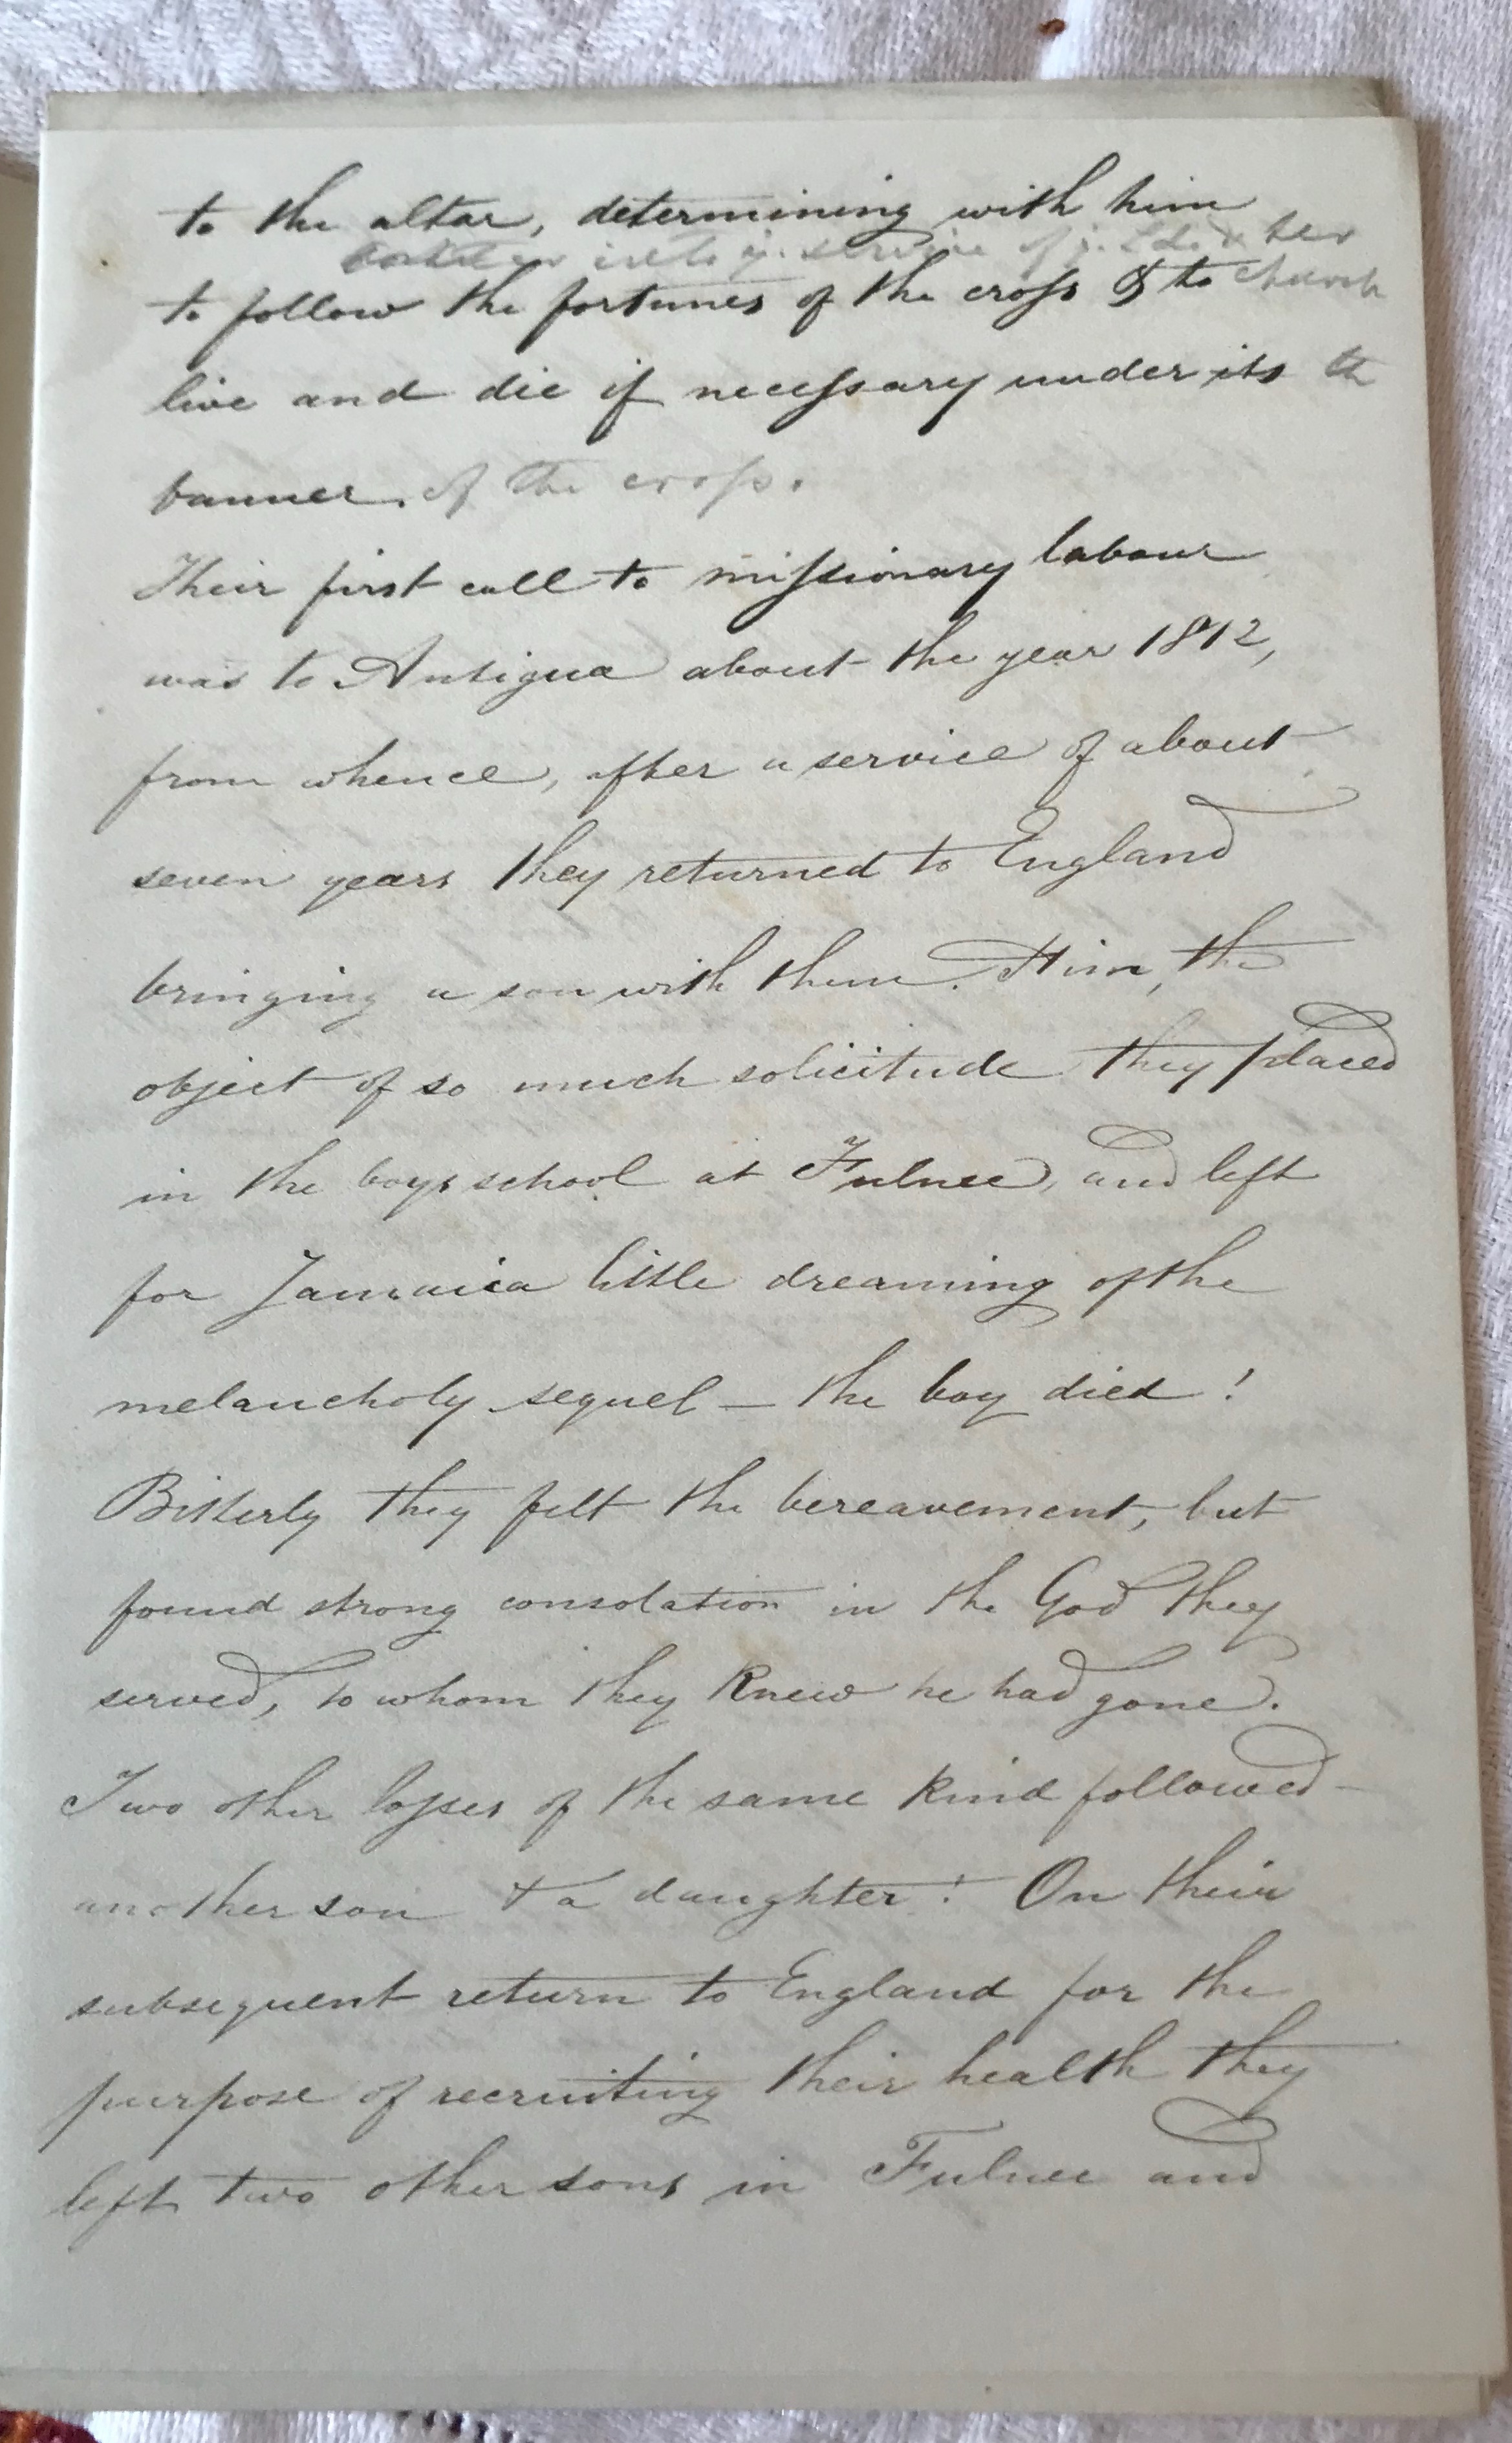 to the altar, determining with him
service of her
to follow the fortunes of the cross & to church
live and die if necessary under its th
banner. of the cross.
Their first call to missionary labour
was to Antigua about the year 1812,
from whence, after a service of about
seven years they returned to England
bringing a son with them. Him, the
object of so much solicitude they placed
in the boys school at Fulnec, and left
for Jamaica little dreaming of the
melancholy sequel – the boy died!
Bitterly they felt the bereavement, but
found strong consolation in the God they
served, to whom they knew he had gone.
Two other losses of the same kind followed –
another son & a daughter! On their
subsequent return to England for the
purpose of recruiting their health they
left two other sons in Fulnec and